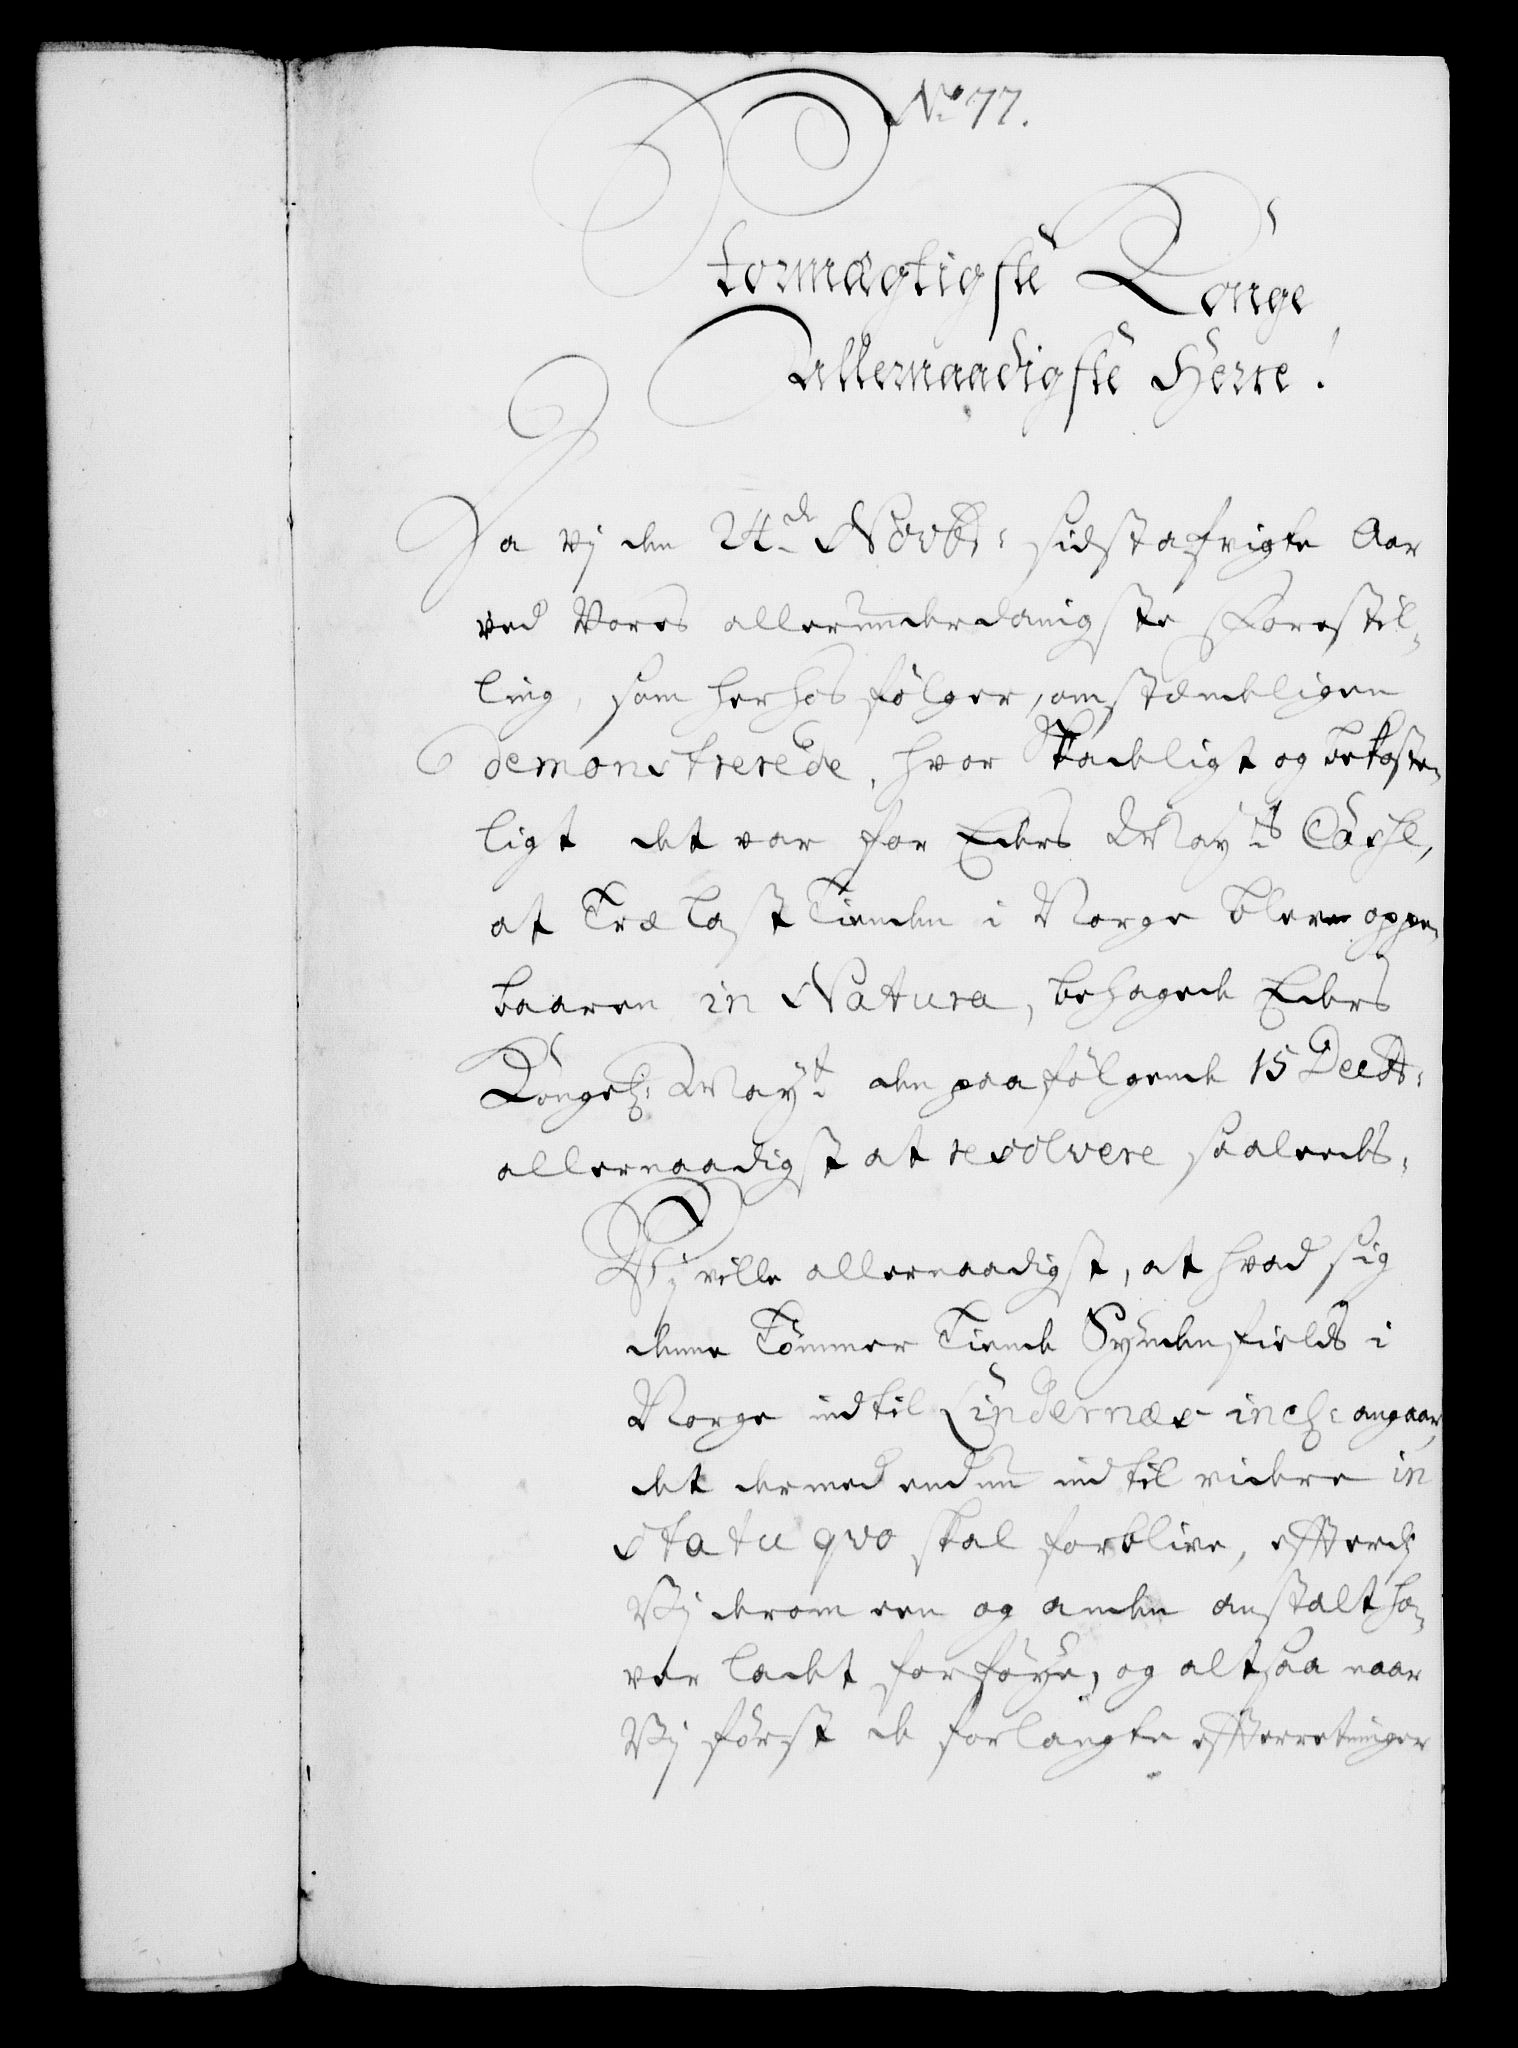 No 77.
Stormægtigste Konge
Allernaadigste Herre!
Da Vj den 24de Novb: sidstafvigte Aar
ved Vores allerunderdanigste Forestil-
ling, som herhos følger, omstændeligen
demonstrerede, hvor skadeligt og bekoste-
ligt det var for Eders Mayts Casse,
at Træ Last Tienden i Norge bleve oppe-
baaren in Natura, behagede Eders
Kongel: Mayt den paafølgende 15 Decb:
allernaadigst at resolvere saaleedes,
Vj ville allernaadigst, at hvad sig
denne Tømmer Tiende Syndenfields i
Norge indtil Lindernæs incl: angaar,
det dermed endnu indtil videre in
statu qvo skal forblive, efterdj
Vj derom een og anden anstalt ha-
ver ladet forføye, og altsaa naar
Vj først de forlangte efterretninger